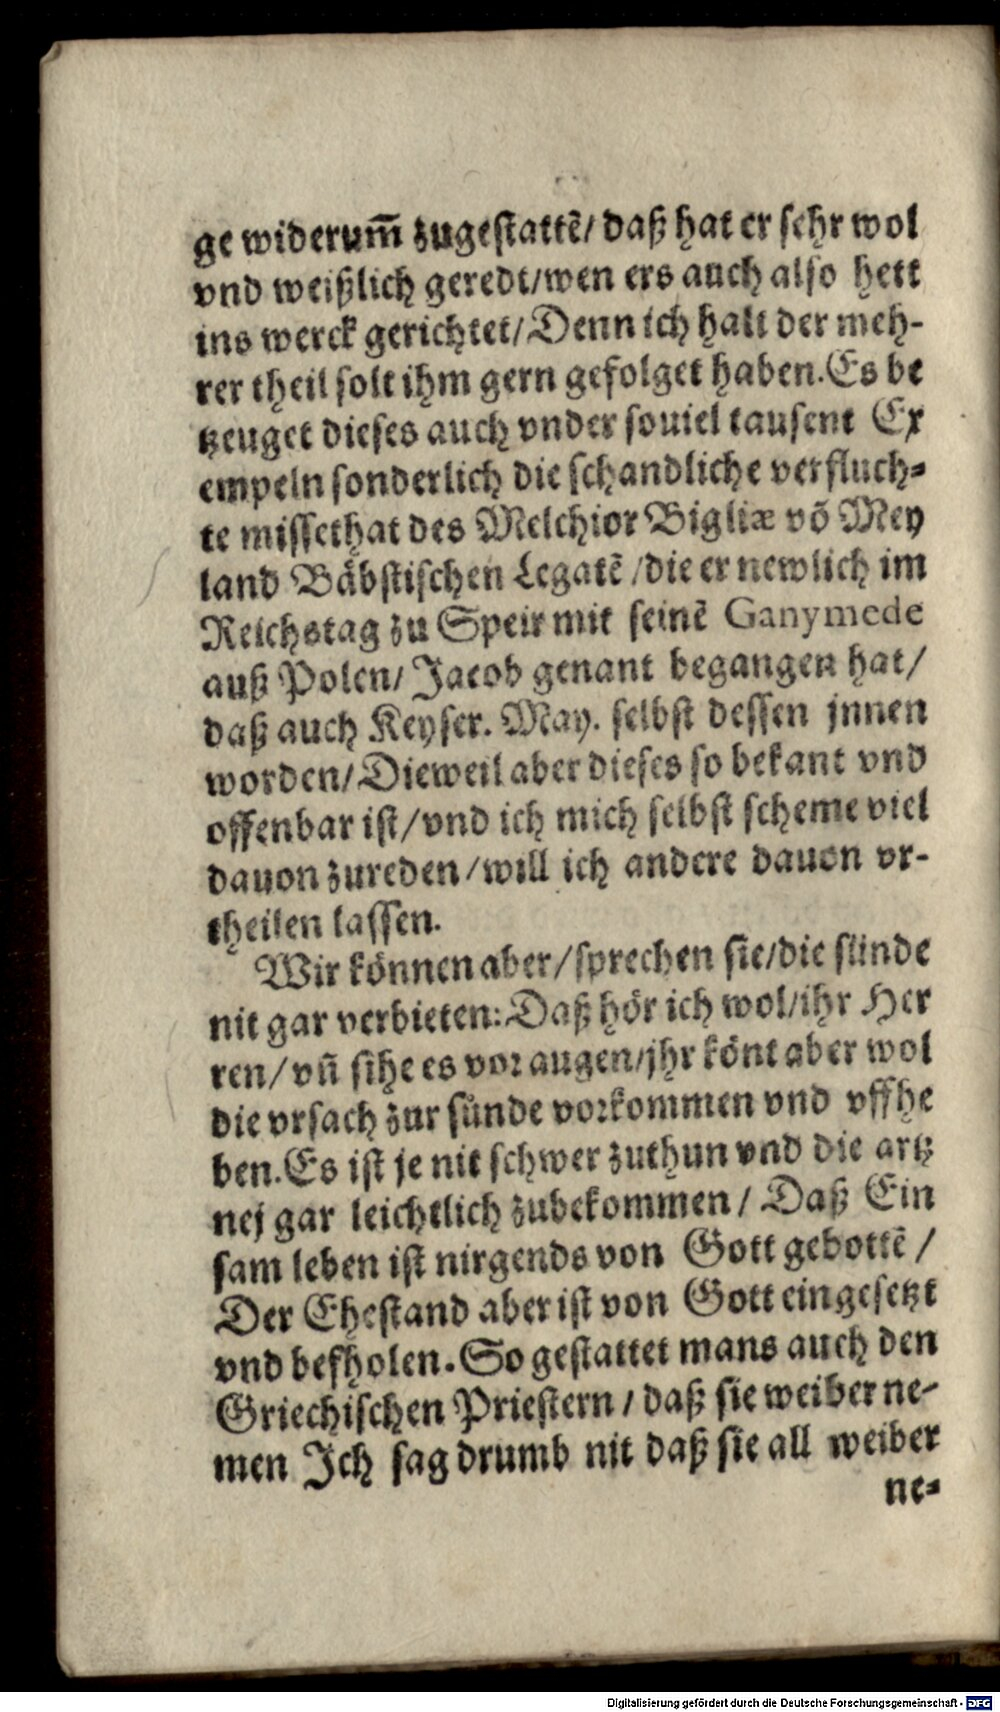 ge widerum̃ zugestattẽ/ daß hat er sehr wol
vnd weißlich geredt/wen ers auch also hett
ins werck gerichtet/Denn ich halt der meh-
rer theil solt ihm gern gefolget haben.Es be
tzeuget dieses auch vnder souiel tausent Ex
empeln sonderlich die schandliche verfluch-
te missethat des Melchior Bigliæ võ Mey
land Bäbstischen Legatẽ /die er newlich im
Reichstag zu Speir mit seinẽ Ganymede
auß Polen/ Jacob genant begangen hat/
daß auch Keyser. May. selbst dessen jnnen
worden/Dieweil aber dieses so bekant vnd
offenbar ist/vnd ich mich selbst scheme viel
dauon zureden/will ich andere dauon vr-
theilen lassen.
Wir können aber/sprechen sie/die sünde
nit gar verbieten: Daß hör ich wol/ihr Her
ren/ vñ sihe es vor augen/jhr könt aber wol
die vrsach zur sünde vorkommen vnd vffhe
ben.Es ist je nit schwer zuthun vnd die artz
nej gar leichtlich zubekommen/ Daß Ein
sam leben ist nirgends von Gott gebottẽ /
Der Ehestand aber ist von Gott eingesetzt
vnd befholen. So gestattet mans auch den
Griechischen Priestern / daß sie weiber ne-
men Ich sag drumb nit daß sie all weiber
ne-
Digitalisierung gefördert durch die Deutsche Forschungsgemeinschaft - DFG